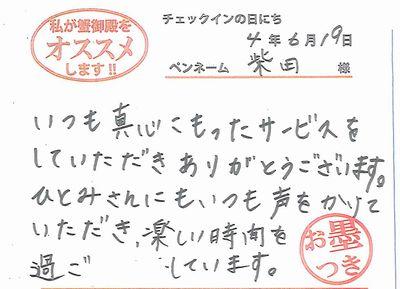 私が蟹御殿を
オススメ
します!!
チェックインの日にち
4年6月19日
ペンネーム 柴田 様
いつも真心こもったサービスを
していただきありがとうございます。
ひとみさんにもいつも声をかけて
いただき、楽しい時間を
過ご しています。
お墨
つき